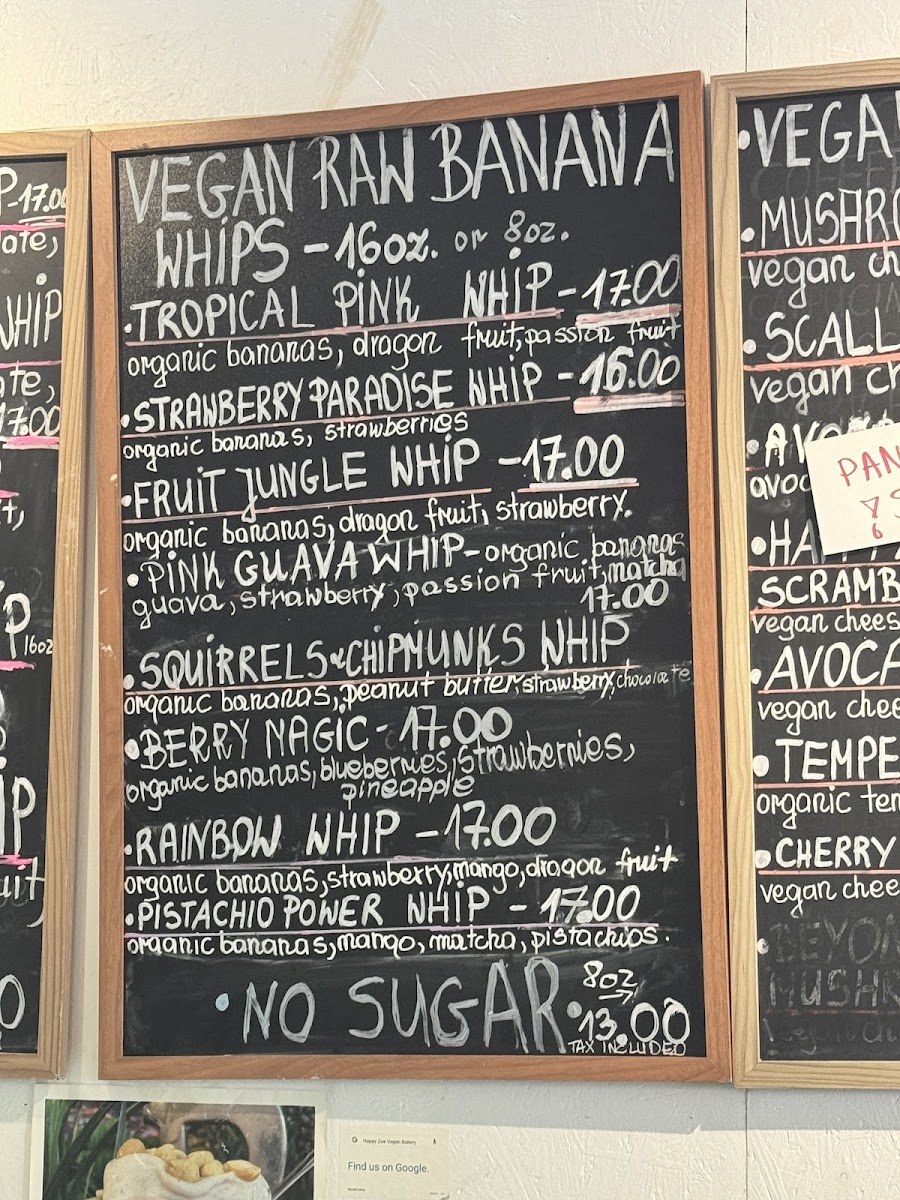 P-17.00
ate,
WHIP
ate,
17.00
P 16oz
IP
uit,
0
VEGAN RAW BANANA
WHIPS - 16oz. or 8oz.
• TROPICAL PINK WHIP - 17.00
organic bananas, dragon fruit, passion fruit
• STRAWBERRY PARADISE WHIP - 16.00
organic bananas, strawberries
• FRUIT JUNGLE WHIP - 17.00
organic bananas, dragon fruit, strawberry.
• PINK GUAVA WHIP - organic bananas
guava, strawberry, passion fruit, matcha
17.00
• SQUIRRELS & CHIPMUNKS WHIP
organic bananas, peanut butter, strawberry, chocolate
• BERRY MAGIC - 17.00
organic bananas, blueberries, strawberries,
pineapple
• RAINBOW WHIP - 17.00
organic bananas, strawberry, mango, dragon fruit
• PISTACHIO POWER WHIP - 17.00
organic bananas, mango, matcha, pistachios.
• NO SUGAR • 8oz → 13.00
TAX INCLUDED
• VEGA
• MUSHRO
vegan ch
• SCALL
vegan ch
• AVO
avoc
PAN
• HA
SCRAMB
vegan chees
• AVOCA
vegan chee
• TEMPE
organic tem
• CHERRY
vegan chee
BEYON
MUSHR
Happy Zoe Vegan Bakery
Find us on Google.